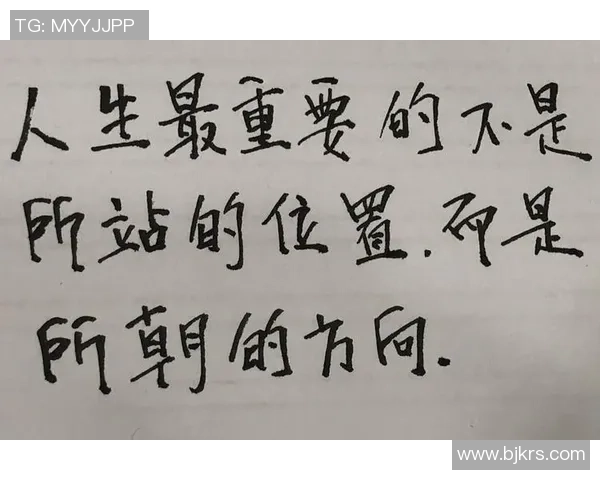 TG: MYYJJPP
人生最重要的不是
所站的位置.而是
所朝的方向.
www.bjkrs.com